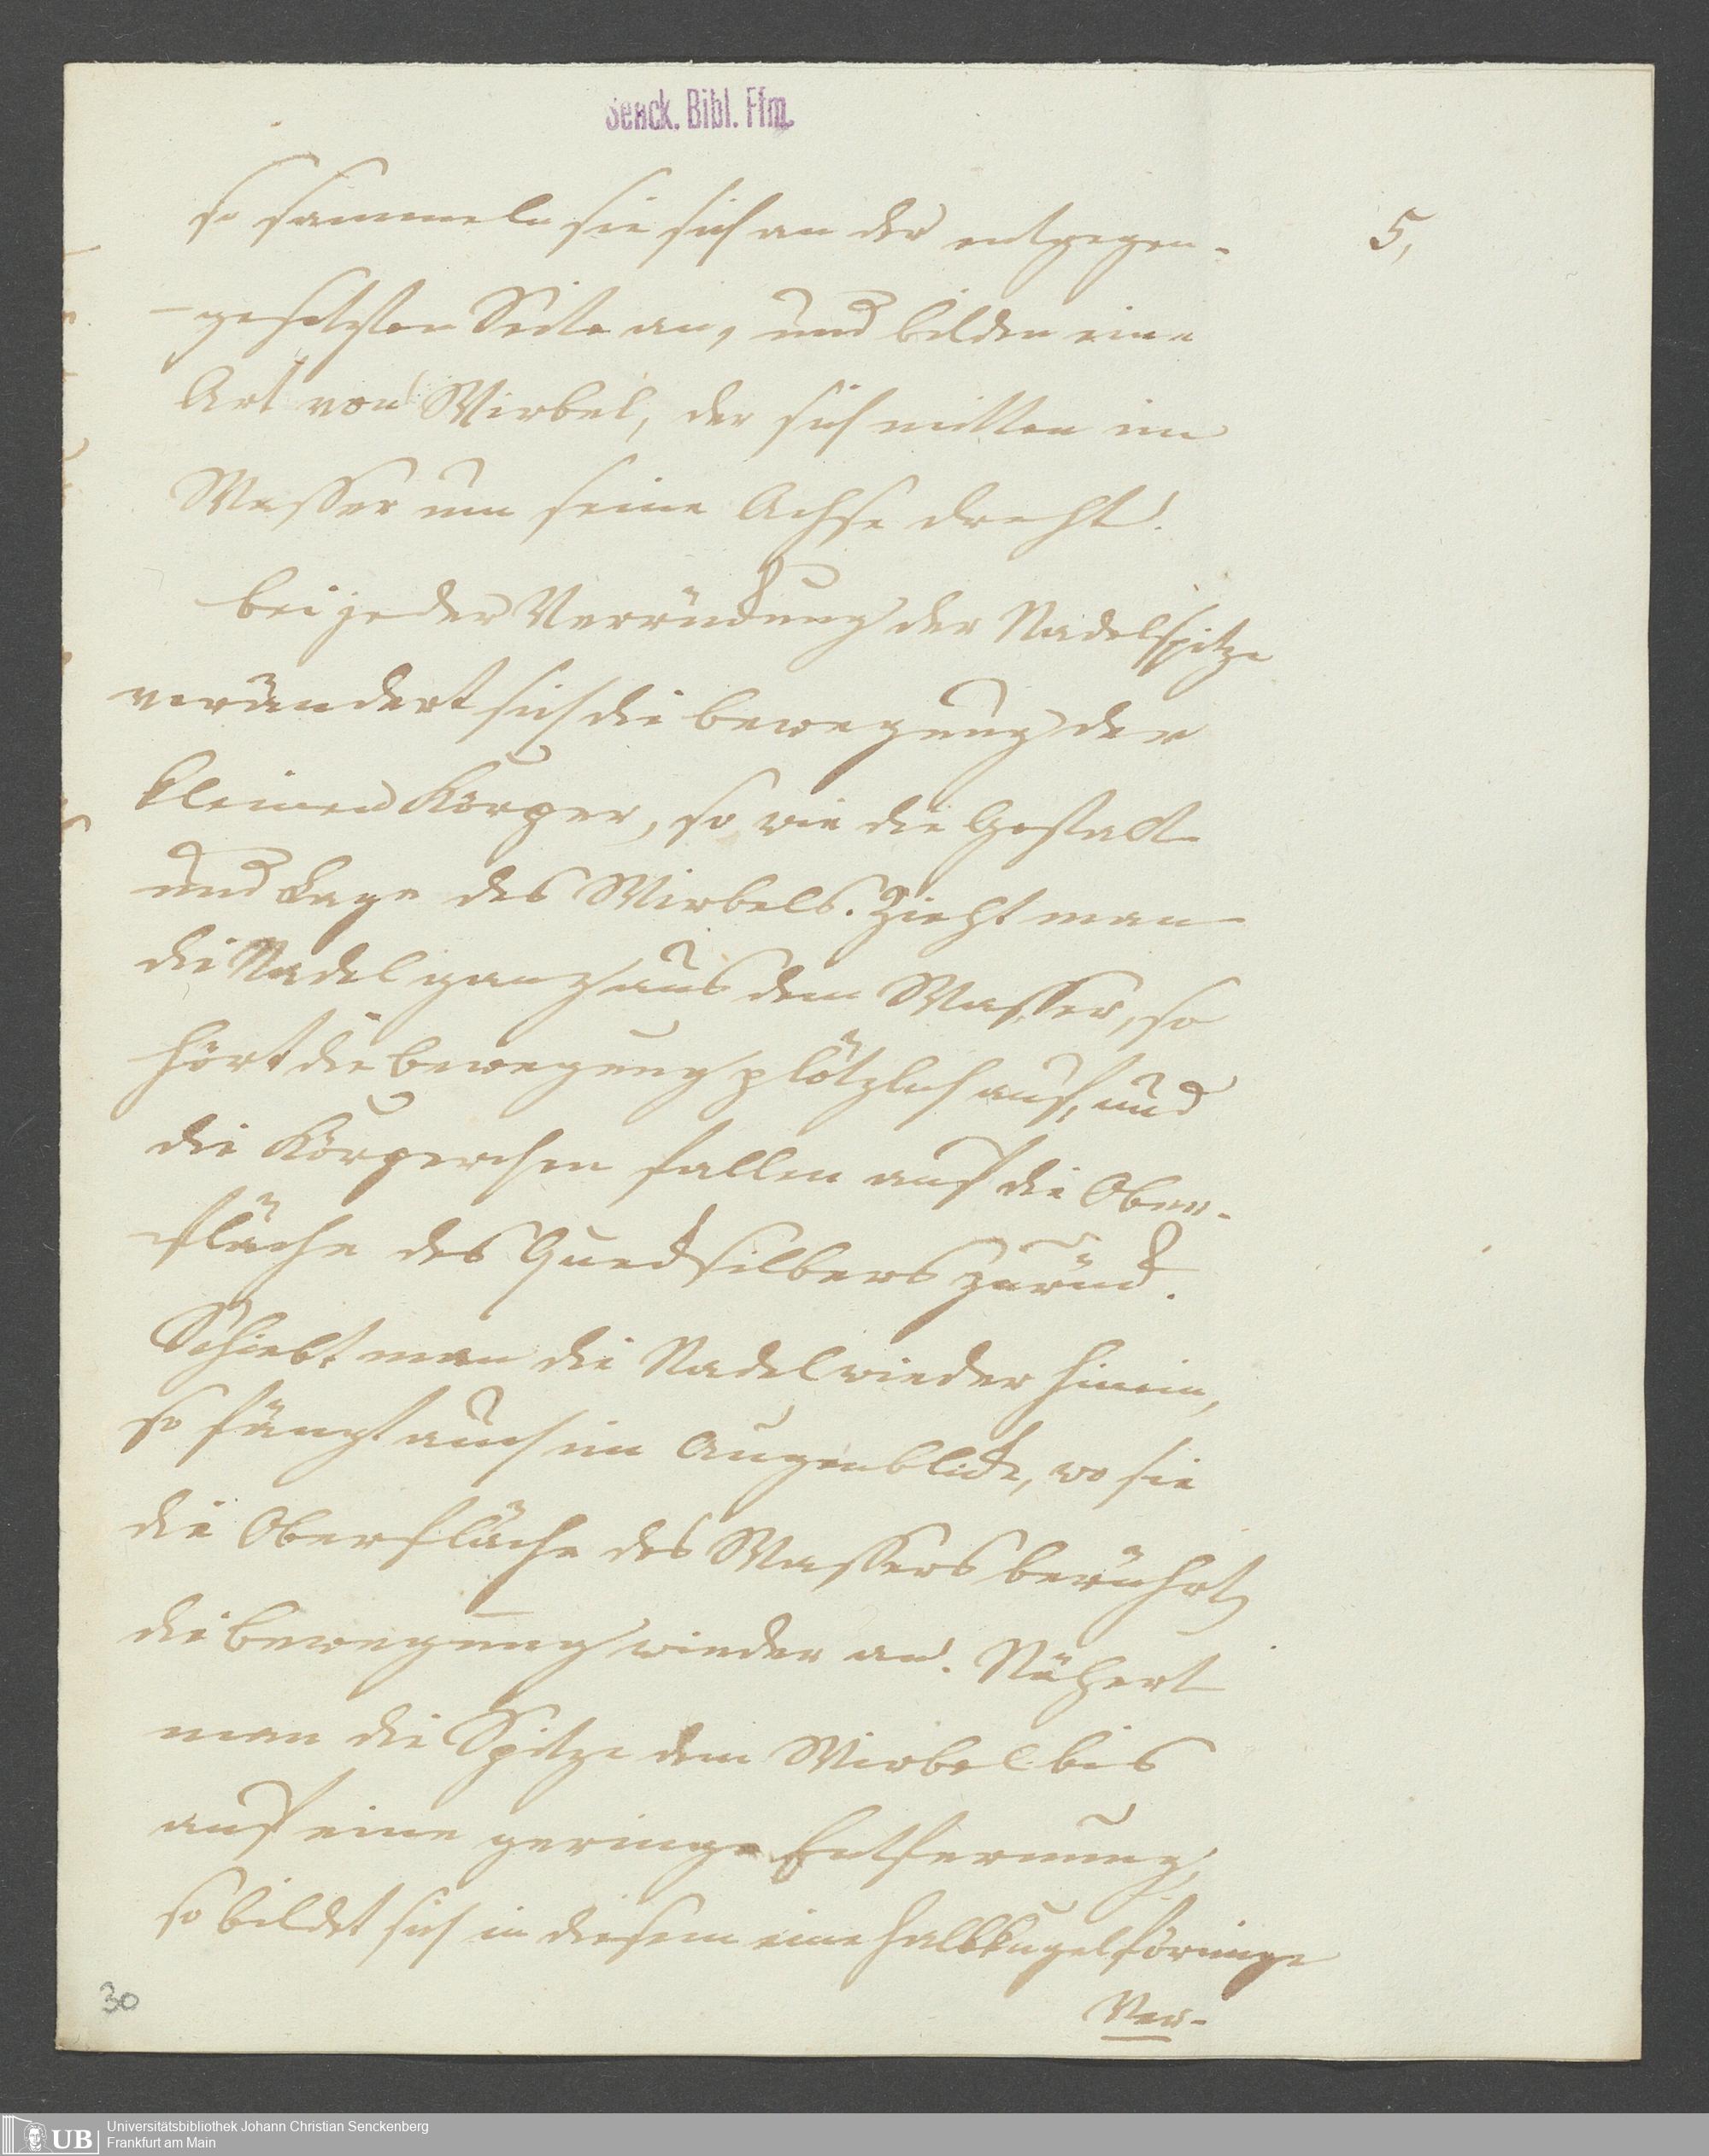 Senck. Bibl. Ffm.
5,
so sammeln sie sich an der entgegen-
-gesetzten Seite an, und bilden eine
Art von Wirbel, der sich mitten im
Wasser um seine Achse dreht.
bei jeder Verrückung der Nadelspitze
verändert sich die bewegung der
kleinen Körper, so wie die Gestalt
und Lage des Wirbels. Zieht man
die Nadel ganz aus dem Wasser, so
hört die bewegung plötzlich auf, und
die Körperchen fallen auf die Ober-
-fläche des Quecksilbers zurück.
Schiebt man die Nadel wieder hinein,
so fängt auch im Augenblicke, wo sie
die Oberfläche des Wassers berührt,
die bewegung wieder an. Nähert
man die Spitze dem Wirbel bis
auf eine geringe Entfernung,
so bildet sich in diesem eine halbkugelförmige
Ver-
30
UB
Universitätsbibliothek Johann Christian Senckenberg
Frankfurt am Main